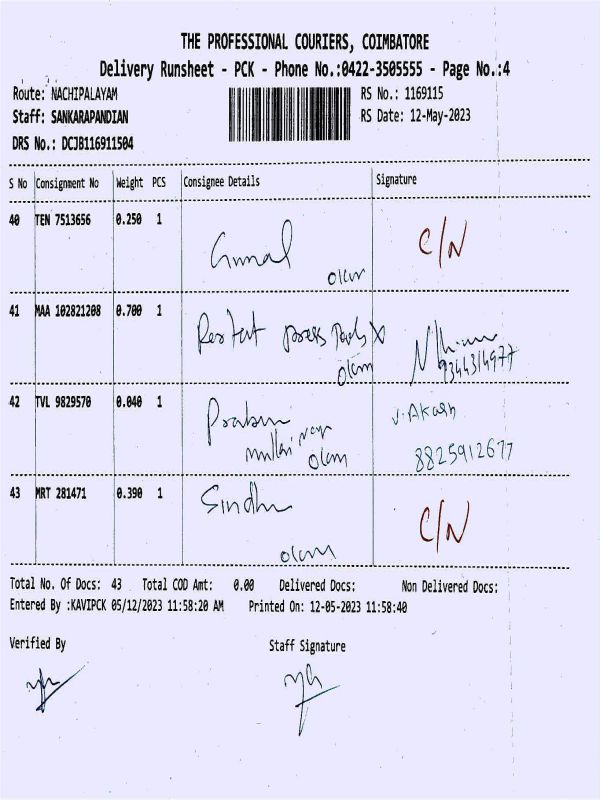 THE PROFESSIONAL COURIERS, COIMBATORE
Delivery Runsheet - PCK - Phone No.:0422-3505555 - Page No.:4
Route: NACHIPALAYAM
RS No.: 1169115
Staff: SANKARAPANDIAN
RS Date: 12-May-2023
DRS No.: DCJB116911504
S No Consignment No Weight PCS Consignee Details Signature
40 TEN 7513656 0.250 1 C/N
41 MAA 102821208 0.700 1
9344314977
42 TVL 9829570 0.040 1 J. Akash
8825912677
43 MRT 281471 0.390 1 Sindhu C/N
Total No. Of Docs: 43 Total COD Amt: 0.00 Delivered Docs: Non Delivered Docs:
Entered By :KAVIPCK 05/12/2023 11:58:20 AM Printed On: 12-05-2023 11:58:40
Verified By Staff Signature